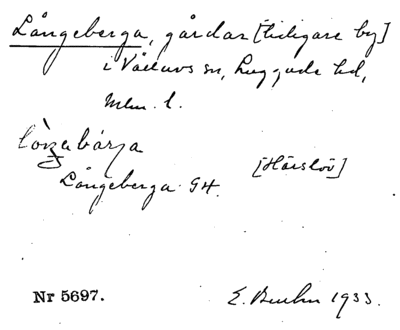 Långeberga, gårdar [tidigare by]
i Välluvs sn, Luggude hd,
Mlm. l.
Långeberga GH. [Härslöv]
Nr 5697. E. 1933.